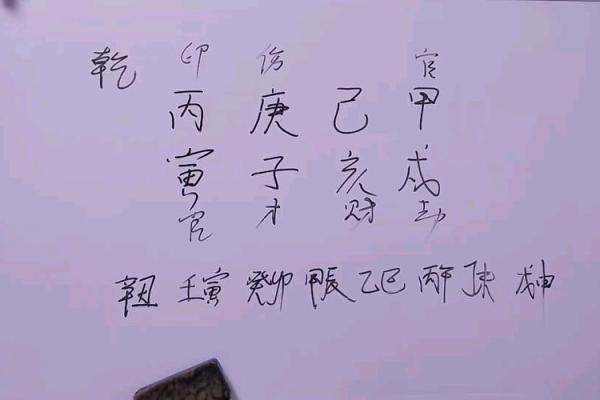 印 伤 官
乾 丙 庚 己 甲
寅 子 亥 戌
官 才 财 劫
辛丑 壬寅 癸卯 甲辰 乙巳 丙午 丁未 戊申